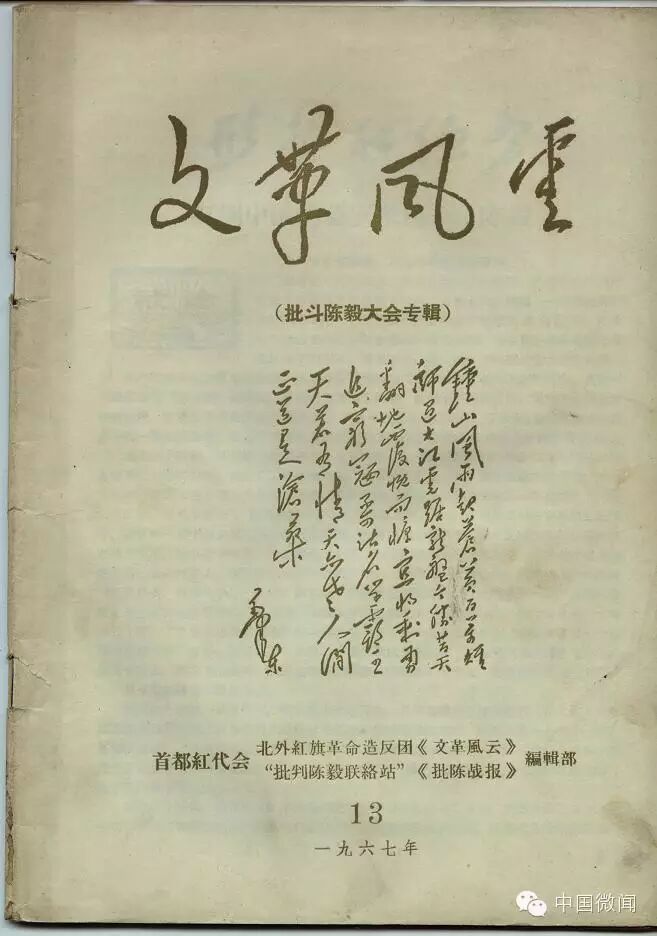 文革風雲
（批斗陈毅大会专輯）
鍾山風雨起蒼黄百万雄
師過大江虎踞龍盤今勝昔天
翻地覆慨而慷宜将剩勇
追窮寇不可沽名学霸王
天若有情天亦老人間
正道是滄桑
毛泽东
首都紅代会 北外紅旗革命造反团《文革風云》
“批判陈毅联絡站”《批陈战报》 編輯部
13
一九六七年
中国微闻